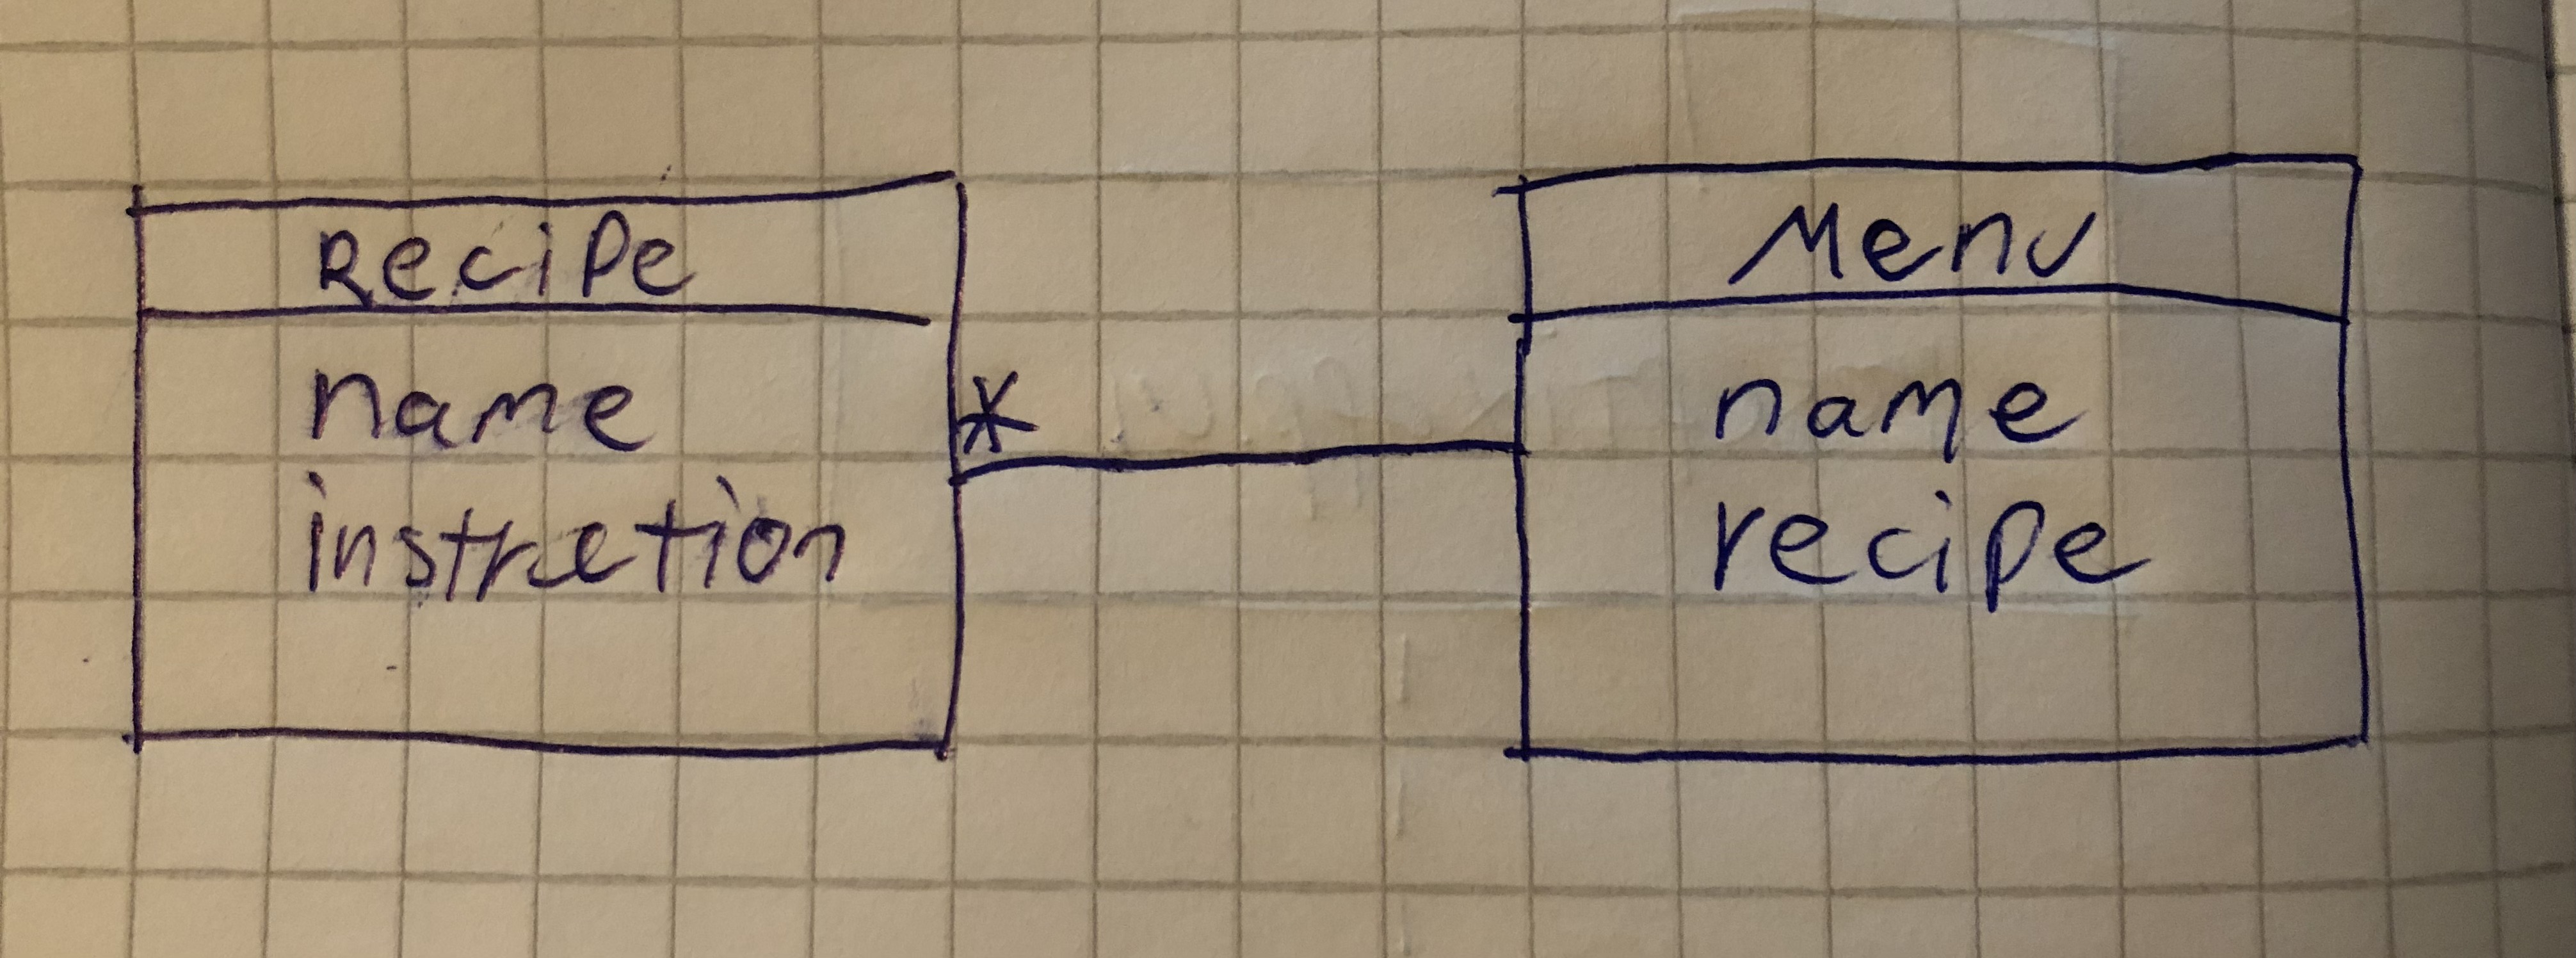 Recipe
name
instruction
*
Menu
name
recipe